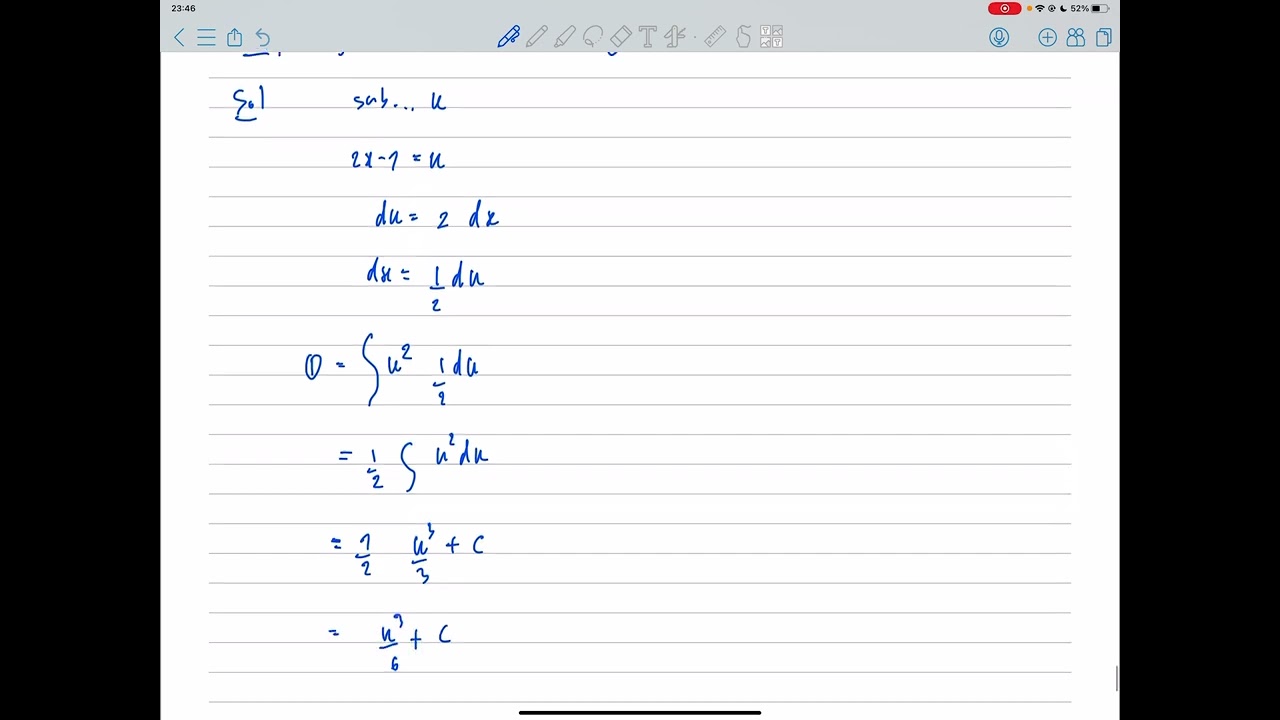 23:46 52%
Sol sub... u
2x-1 = u
du = 2 dx
dx = 1/2 du
① = ∫ u² 1/2 du
= 1/2 ∫ u² du
= 1/2 u³/3 + C
= u³/6 + C